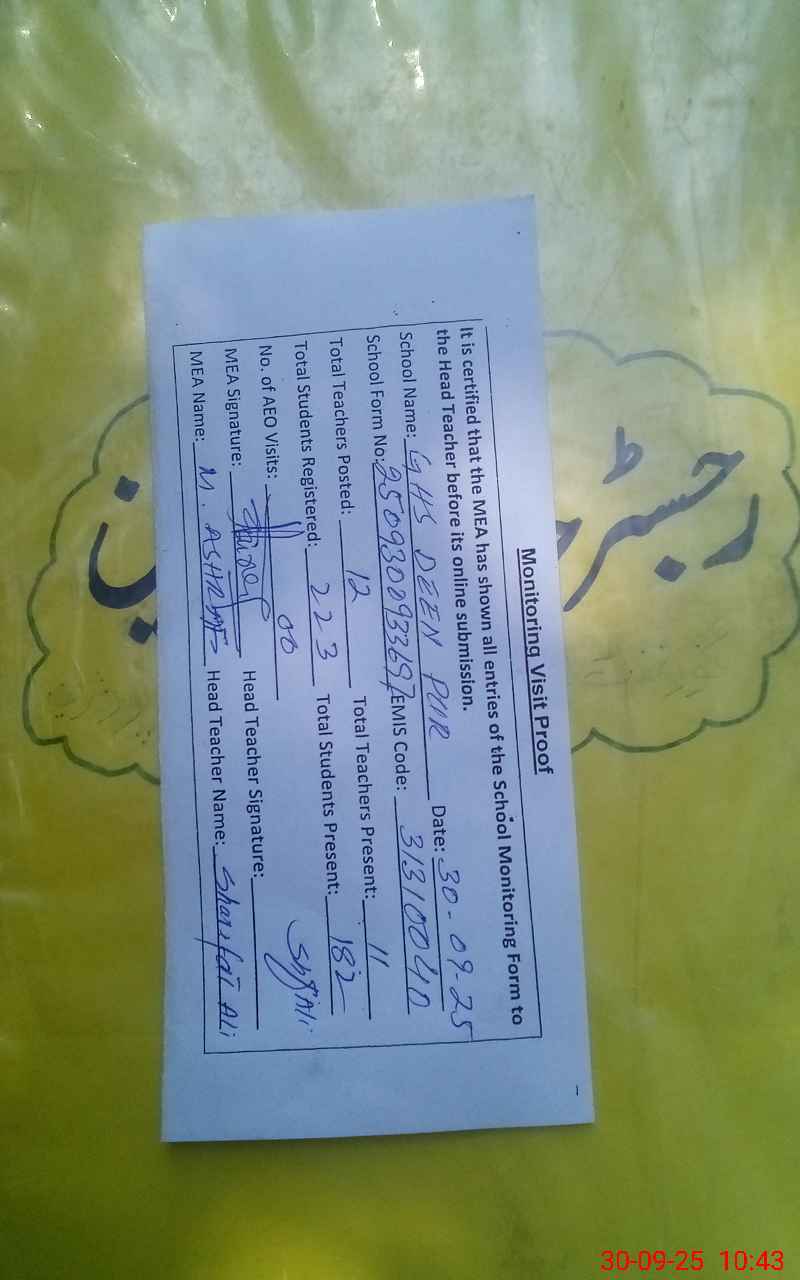 Monitoring Visit Proof
It is certified that the MEA has shown all entries of the School Monitoring Form to
the Head Teacher before its online submission.
School Name: GHS DEEN PUR Date: 30-09-25
School Form No: 2509302933697 EMIS Code: 31310040
Total Teachers Posted: 12 Total Teachers Present: 11
Total Students Registered: 223 Total Students Present: 182
No. of AEO Visits: 00
MEA Signature: Head Teacher Signature: Sh Ali
MEA Name: M. ASHRAF Head Teacher Name: Sharafat Ali
رجسٹر
30-09-25 10:43